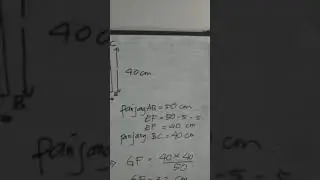 C
40 cm
40 cm
B
panjang AB = 50 cm
EF = 50 - 5 - 5
EF = 40 cm
panjang BC = 40 cm
GF = 40 × 40
50